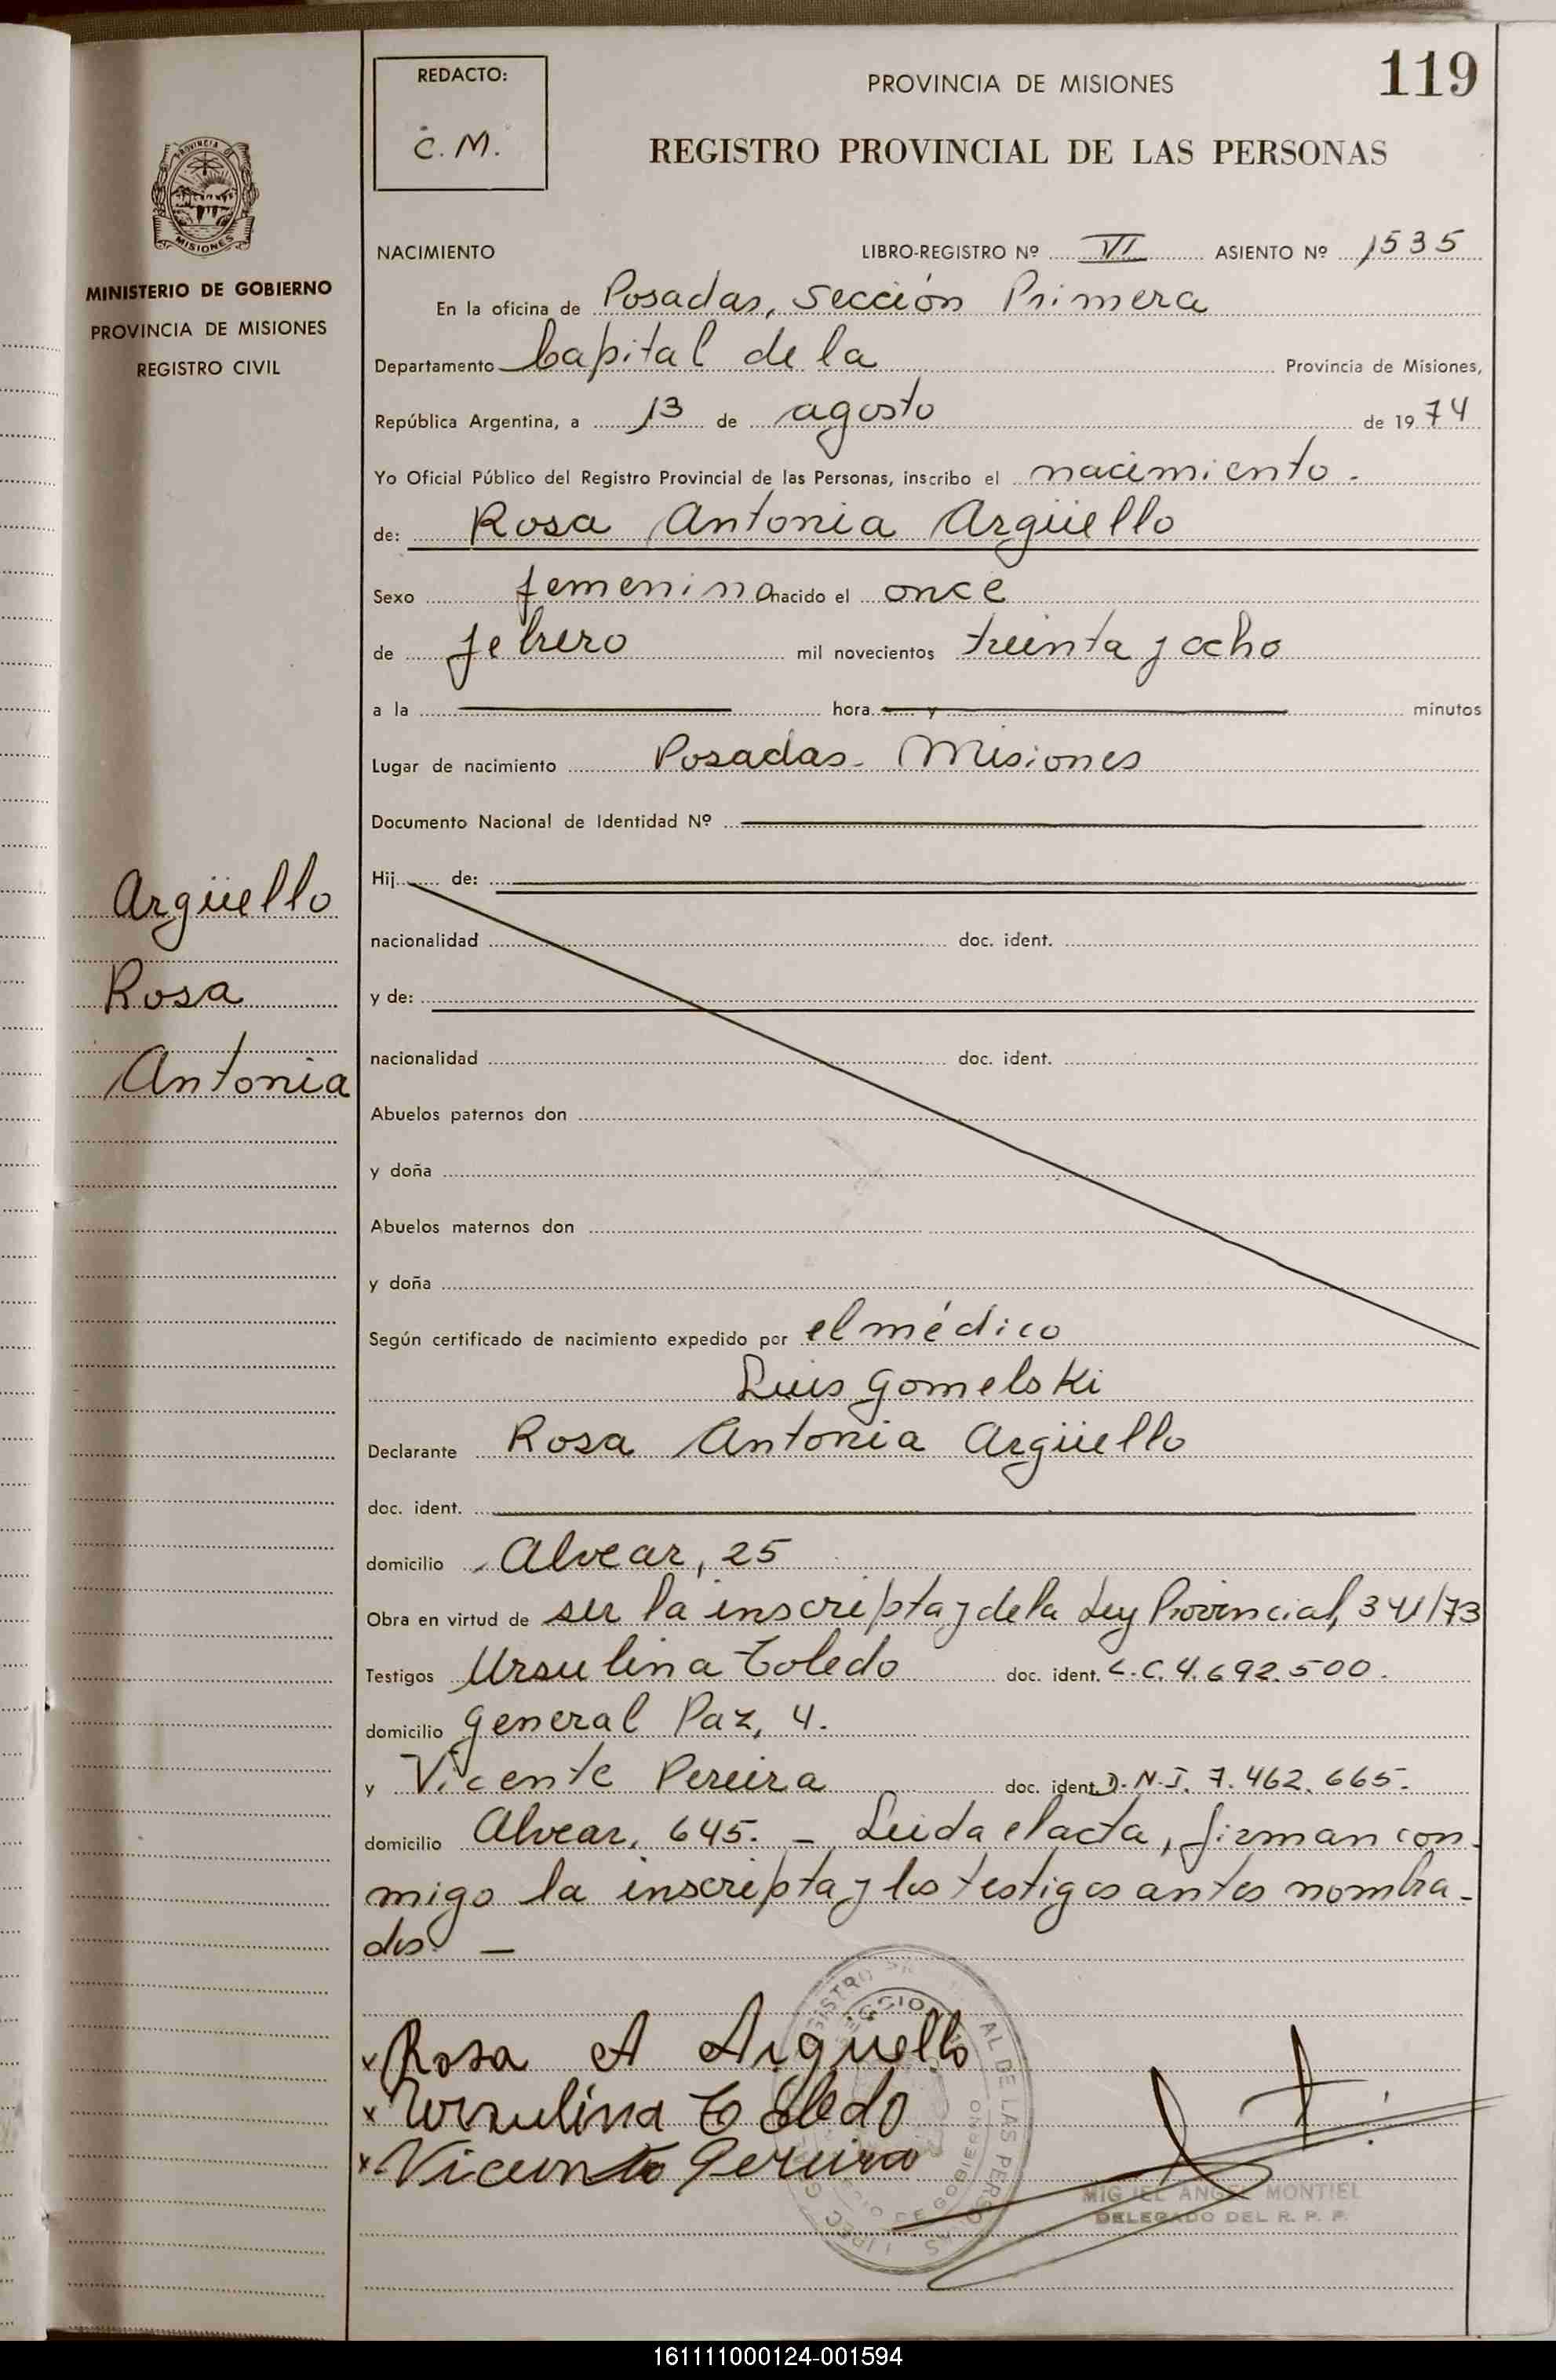 119
REDACTO:
C. M.
PROVINCIA DE MISIONES
REGISTRO PROVINCIAL DE LAS PERSONAS
PROVINCIA DE
MISIONES
MINISTERIO DE GOBIERNO
PROVINCIA DE MISIONES
REGISTRO CIVIL
NACIMIENTO LIBRO-REGISTRO Nº VI ASIENTO Nº 1535
En la oficina de Posadas, Sección Primera
Departamento Capital de la Provincia de Misiones,
República Argentina, a 13 de agosto de 1974
Yo Oficial Público del Registro Provincial de las Personas, inscribo el nacimiento.
de: Rosa Antonia Argüello
Sexo femenino nacido el once
de febrero mil novecientos treinta y ocho
a la hora y minutos
Lugar de nacimiento Posadas - Misiones
Documento Nacional de Identidad Nº
Hij de:
Argüello
nacionalidad doc. ident.
Rosa
y de:
Antonia
nacionalidad doc. ident.
Abuelos paternos don
y doña
Abuelos maternos don
y doña
Según certificado de nacimiento expedido por el médico
Luis Gomelski
Declarante Rosa Antonia Argüello
doc. ident.
domicilio Alvear, 25
Obra en virtud de ser la inscripta y de la Ley Provincial, 341/73
Testigos Ursulina Toledo doc. ident. L.C. 4.692.500.
domicilio General Paz, 4.
y Vicente Pereira doc. ident. D.N.I. 7.462.665.
domicilio Alvear, 645. - Leida el acta, firman con-
migo la inscripta y los testigos antes nombra-
dos. -
x Rosa A Arguello
x Urzulina Toledo
x Vicente Pereira
MIGUEL ANGEL MONTIEL
DELEGADO DEL R. P. P.
161111000124-001594